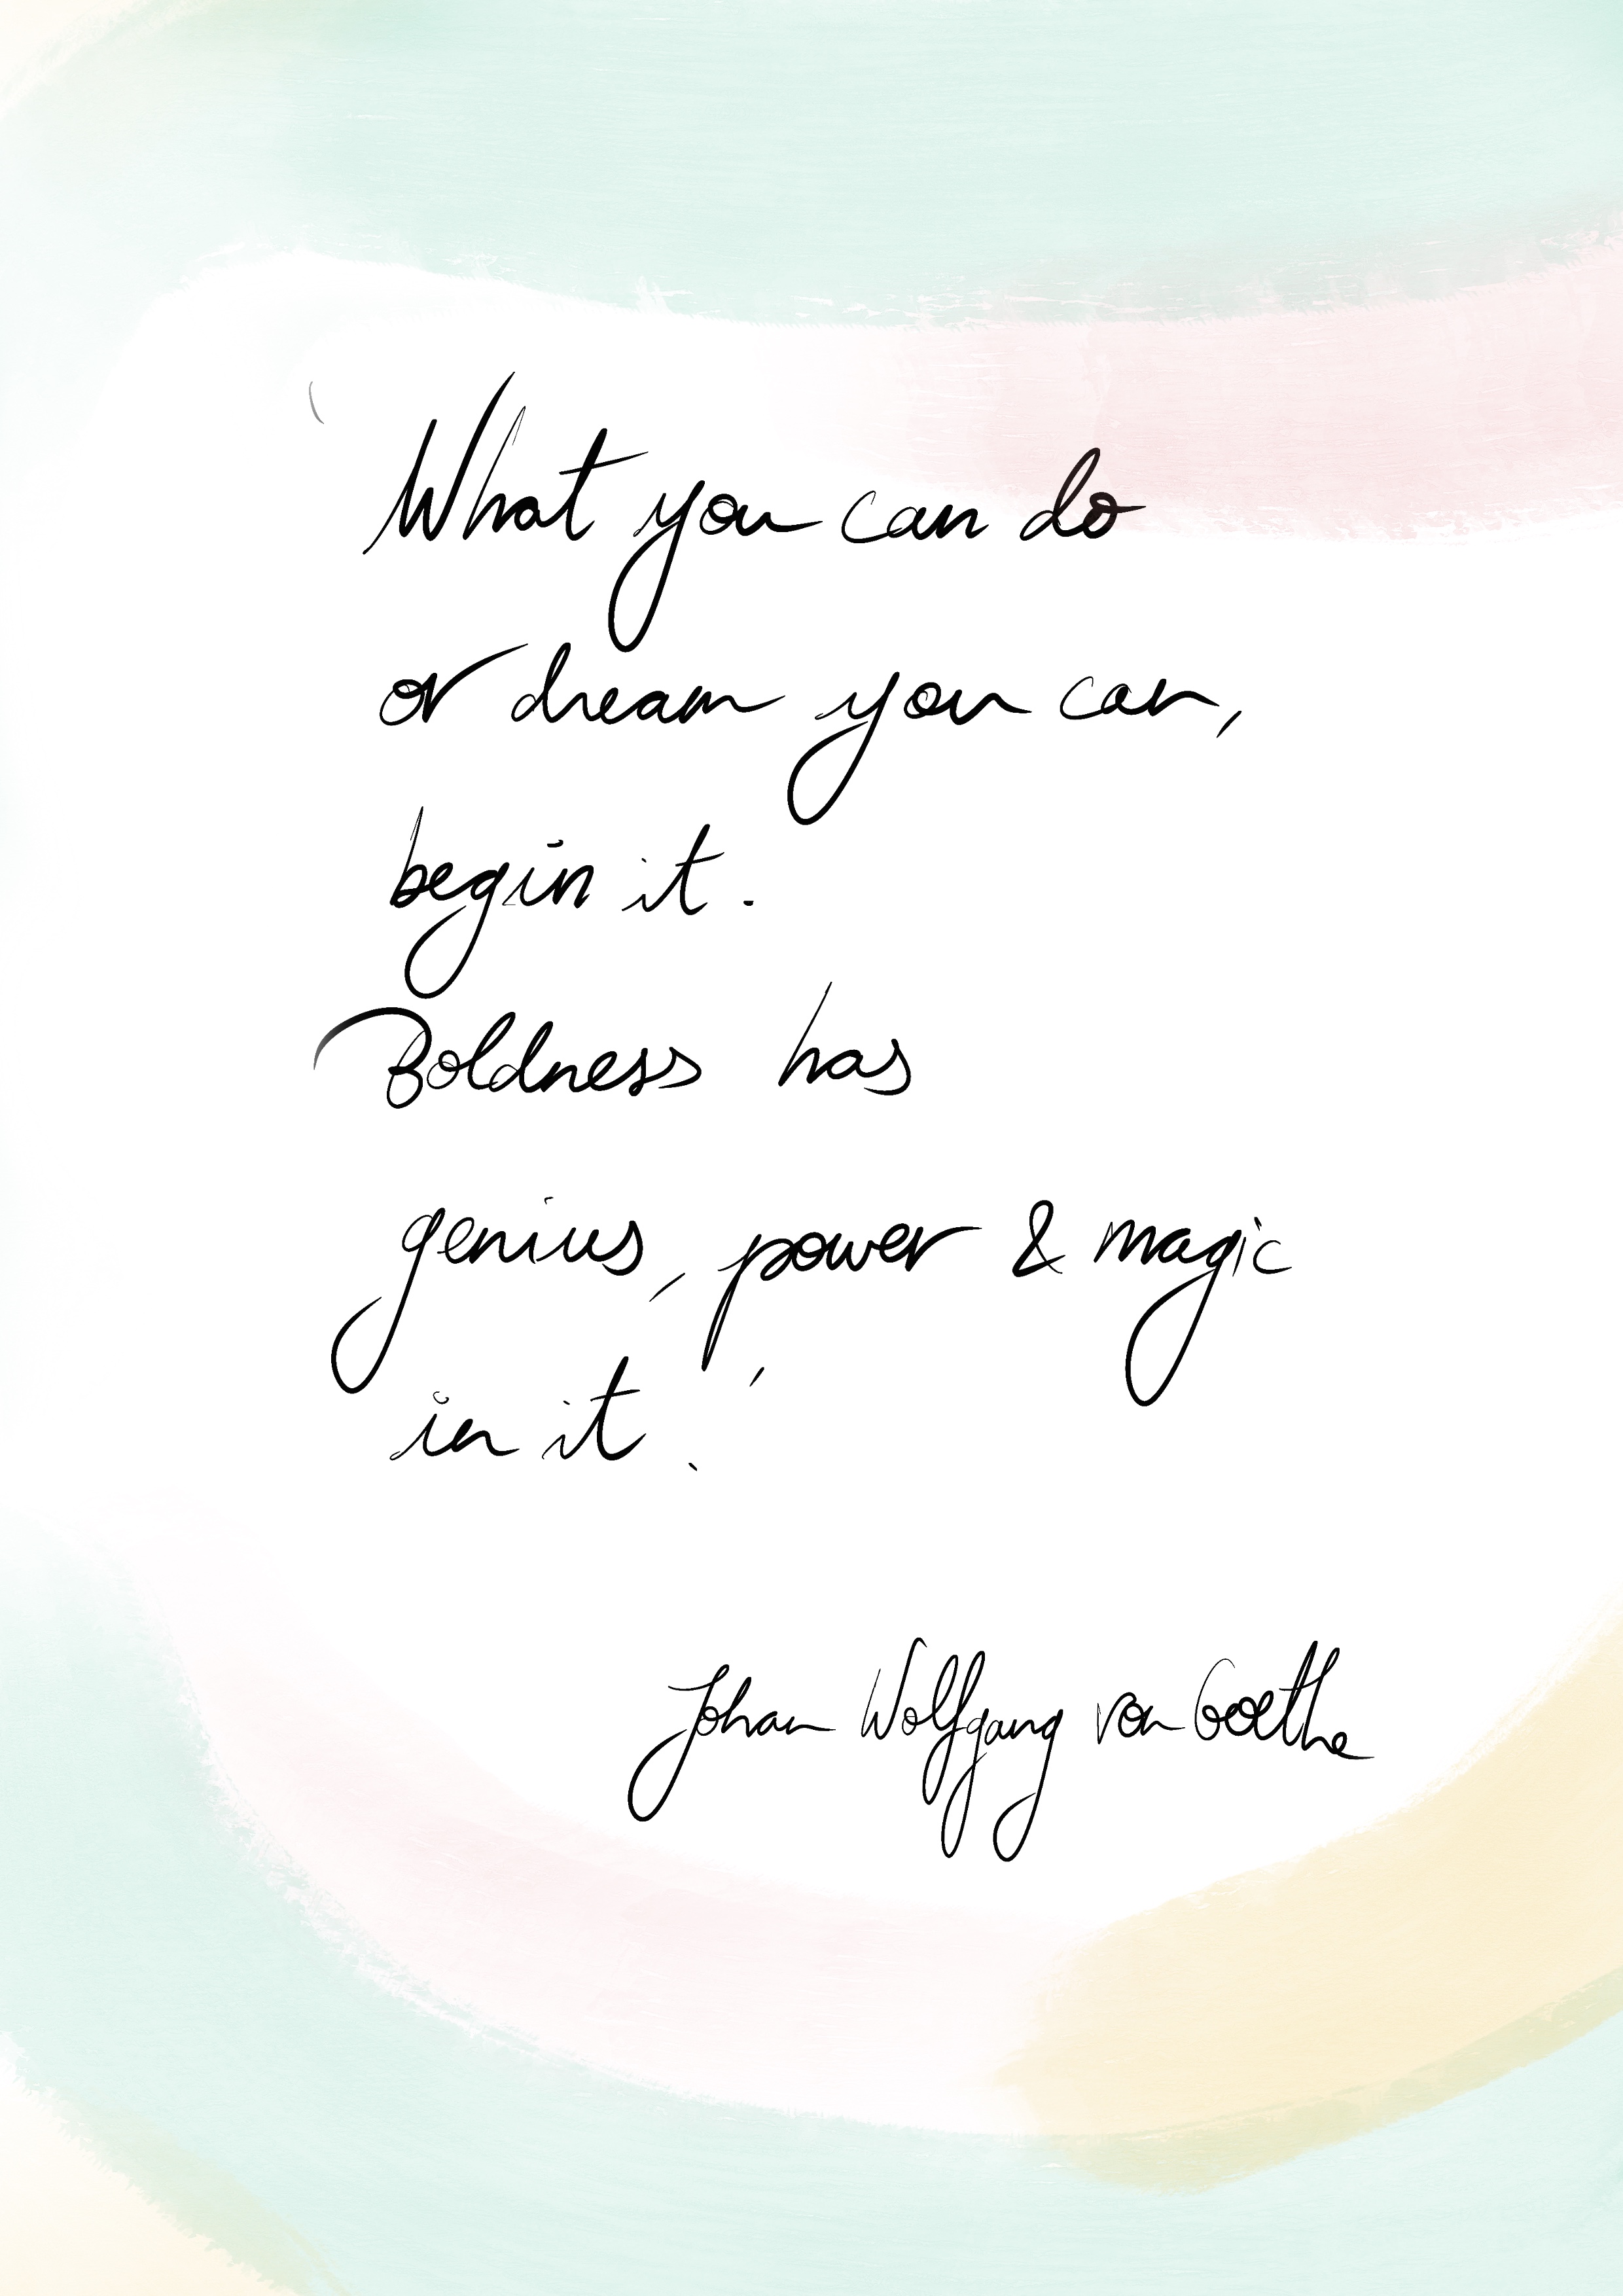 What you can do
or dream you can,
begin it.
Boldness has
genius, power & magic
in it.
Johan Wolfgang von Goethe